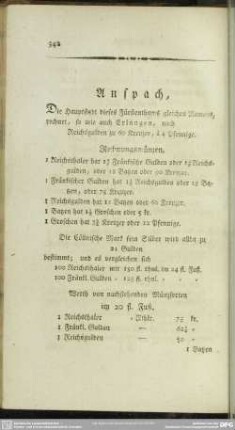 342
Anspach,
Die Hauptstadt dieses Fürstenthums gleiches Namens,
rechnet, so wie auch Erlangen, nach
Reichsgulden zu 60 Kreuzer, à 4 Pfennige.
Rechnungsmünzen.
1 Reichsthaler hat 1⅕ Fränkische Gulden oder 1½ Reichs-
gulden, oder 22½ Bazen oder 90 Kreuzer.
1 Fränkischer Gulden hat 1¼ Reichsgulden oder Ba-
zen, oder 75 Kreuzer.
1 Reichsgulden hat 15 Bazen oder 60 Kreuzer.
1 Bazen hat Groschen oder 4 kr.
1 Groschen hat 3 Kreuzer oder 12 Pfennige.
Die Cöllnische Mark fein Silber wird allda zu
24 Gulden
bestimmt; und es vergleichen sich
100 Reichsthaler mit 150 fl. rhnl. im 24 fl. Fuß.
100 Fränkl. Gulden - 125 fl. rhnl.
Werth von nachstehenden Münzsorten
im 20 fl. Fuß.
1 Reichsthaler - Rthlr. 75 kr.
1 Fränkl. Gulden — 62½ -
1 Reichsgulden — 50 -
1 Bazen